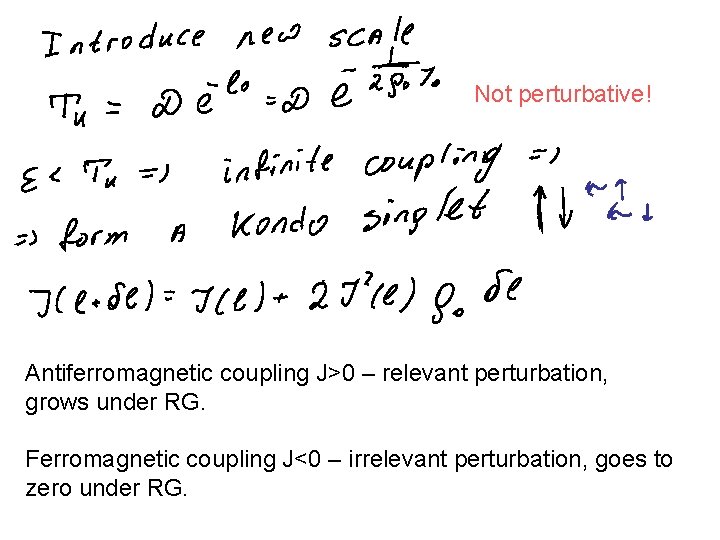 Introduce new scale
T_K = D e^{-l_0} = D e^{-\frac{1}{2ρ_0 J_0}} Not perturbative!
ε < T_K => infinite coupling =>
=> form a Kondo singlet ↑↓ ←↑ ←↓
J(l+δl) = J(l) + 2J²(l) ρ_0 δl
Antiferromagnetic coupling J>0 – relevant perturbation,
grows under RG.
Ferromagnetic coupling J<0 – irrelevant perturbation, goes to
zero under RG.